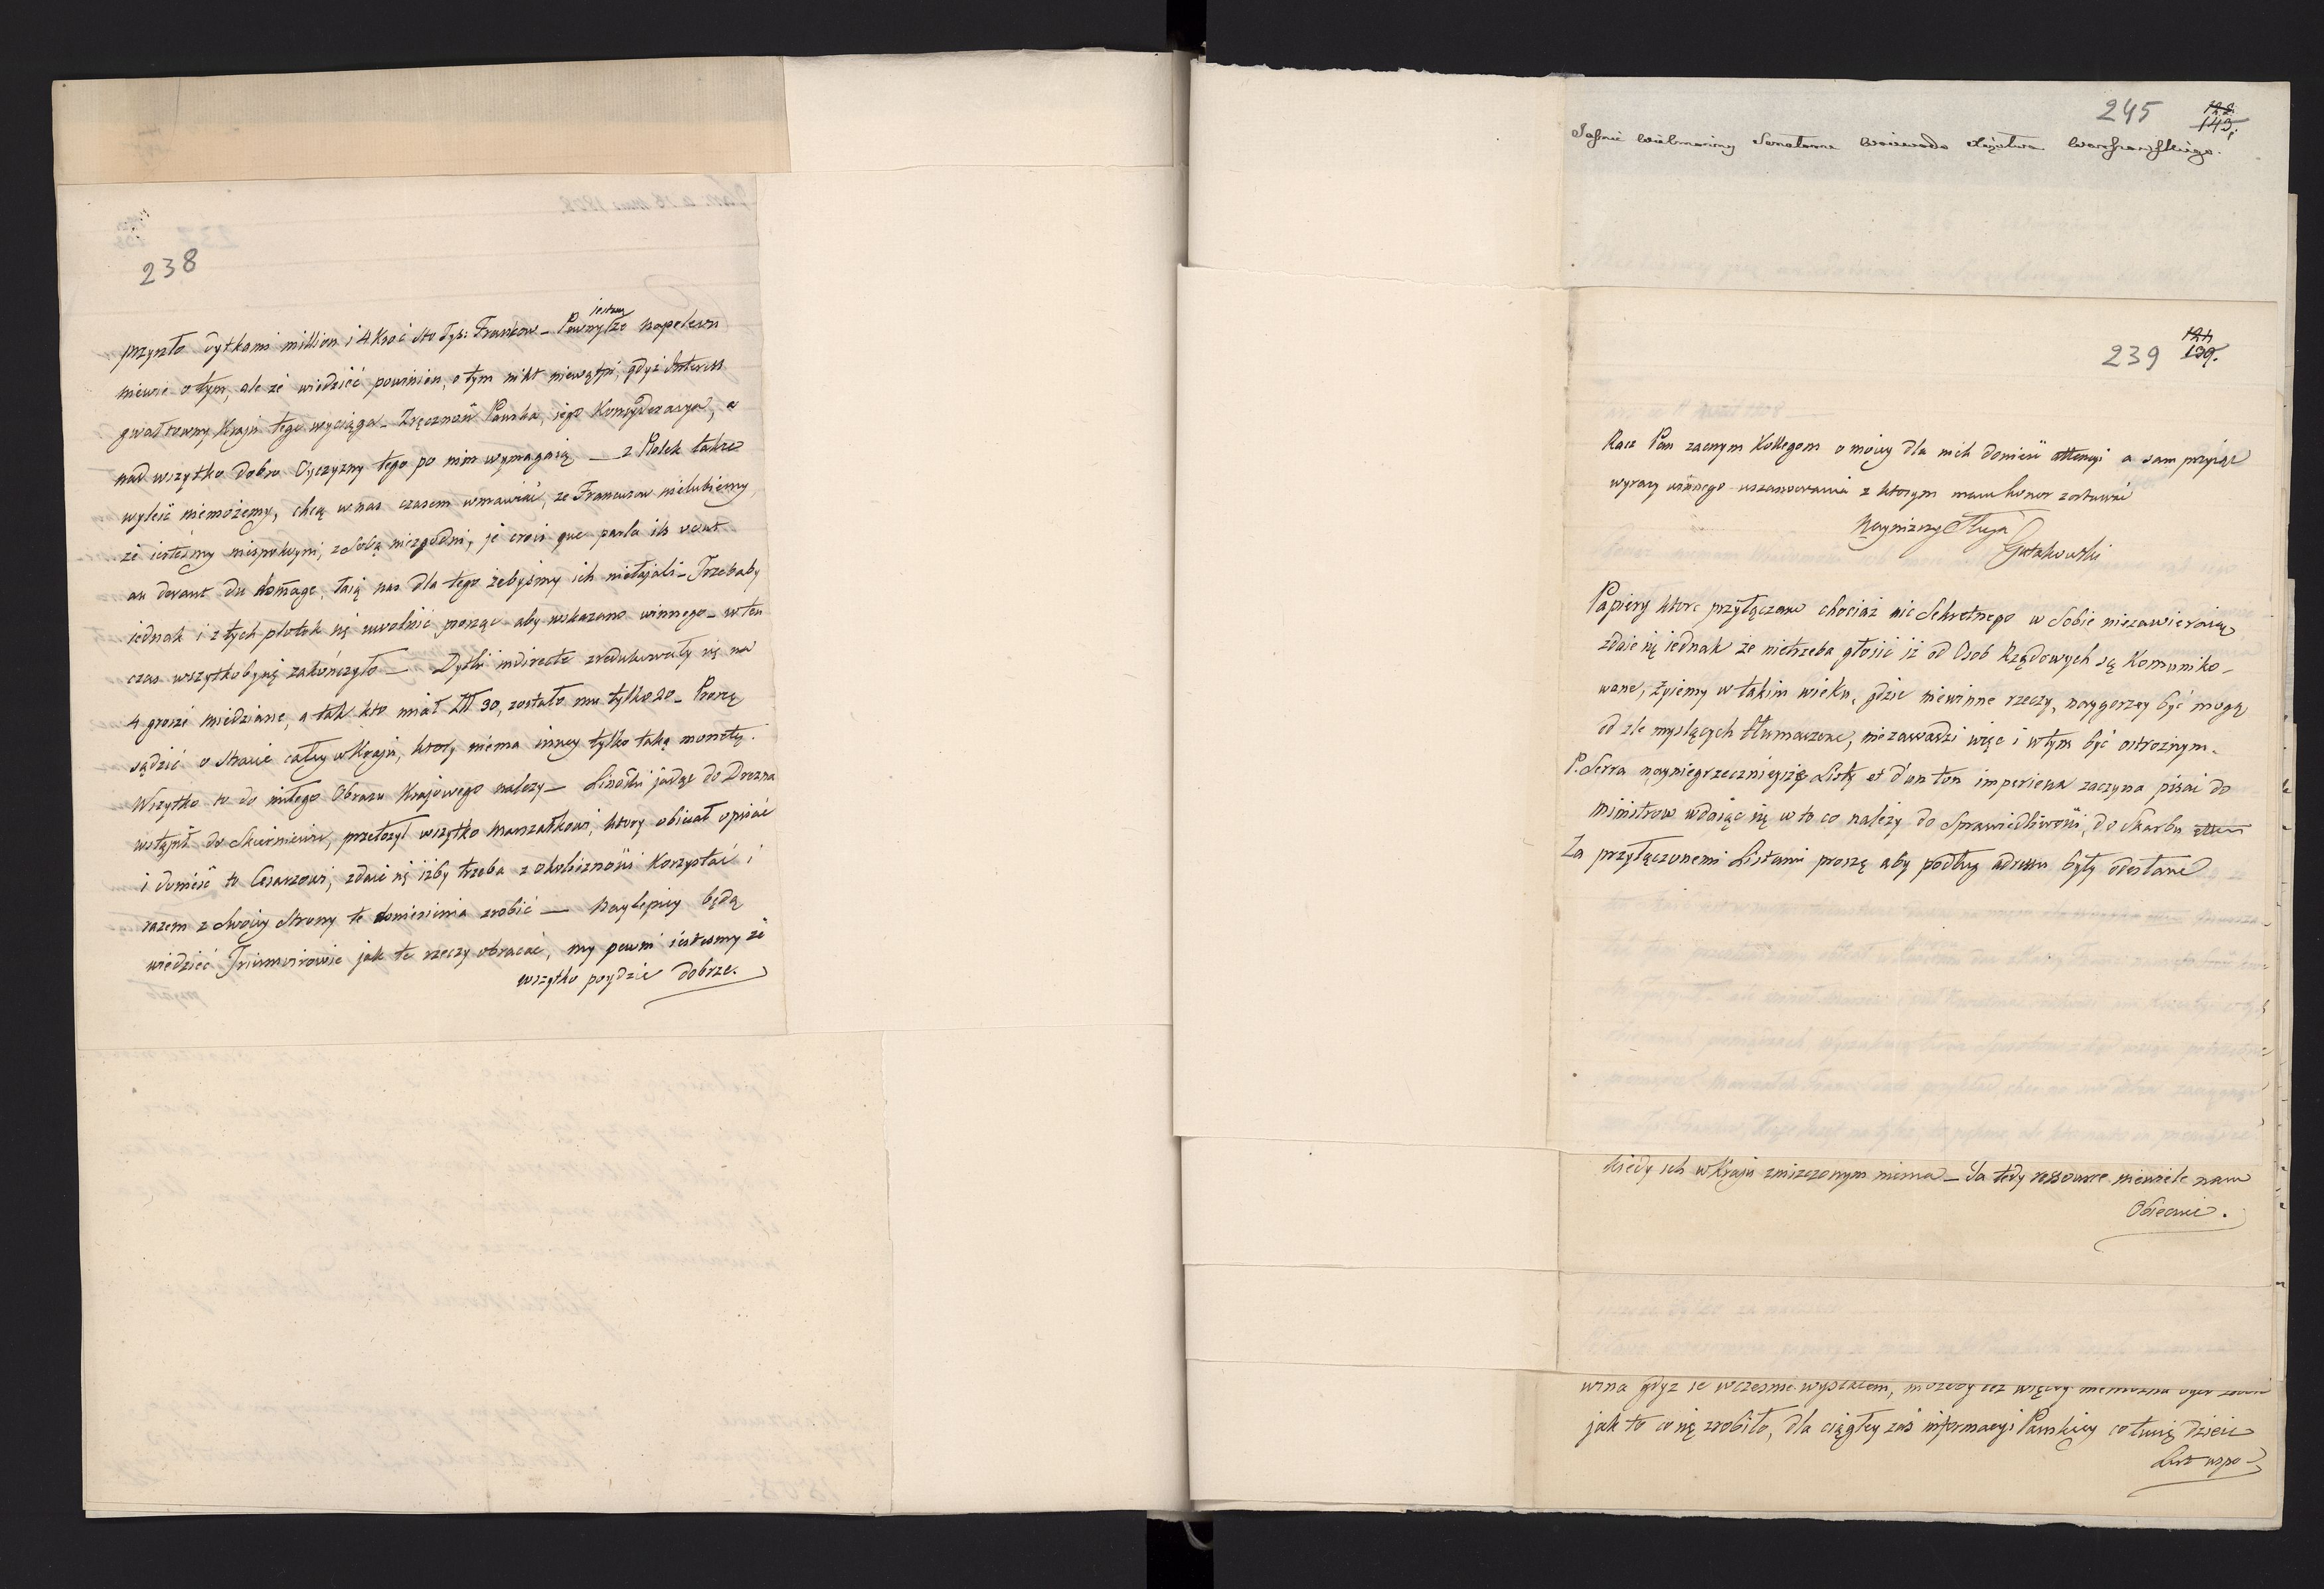 238
przyszło dytkami million i 4 Kroć sto Tys: Frankow – Pewny jestem że Napoleon
niewie o tym, ale że wiedzieć powinien, o tym nikt niewątpi, gdyż Interess
gwałtowny Kraju tego wyciąga – Zręczność Pańska, jego Konsyderacya, a
nad wszytko dobro Oyczyzny tego po nim wymagaią — z Plotek także
wyleść niemożemy, chcą w nas czasem wmawiać, że Francuzow nielubiemy,
że iesteśmy niespokoyni, z sobą niezgodni, je crois que par la ils vont
au devant du domage, łaią nas dla tego żebyśmy ich niełajali – Trzebaby
iednak i z tych plotek się uwolnić prosząc aby wskazano winnego – w ten
czas wszytkoby się zakończyło — Dytki indirecte zredukowały się na
4 grosze miedziane, a tak kto miał Zł 30, zostało mu tylko 20 – Proszę
sądzić o stracie całey w Kraju, ktory niema inney tylko taką monetę.
Wszytko to do miłego Obrazu Krajowego należy — Linowski jadąc do Drezna
wstąpił do Skierniewic, przełożył wszytko Marszałkowi, ktory obiecał opisać
i donieść to Cesarzowi, zdaie się iżby trzeba z okoliczności Korzystać i
razem z Swoiey Strony te doniesienia zrobić — Naylepiey będą
wiedzieć Triumvirowie jak te rzeczy obracać, my pewni iesteśmy że
wszytko poydzie dobrze.
245
143.
Jaśnie Wielmożny Senatorze Woiewodo Xięstwa Warszawskiego.
239
Racz Pan zacnym Kollegom o moiey dla nich donieść attencyi a sam przyiąć
wyrazy winnego uszanowania z ktorym mam honor zostawać
Nayniższy Sługa
Gutakowski
Papiery ktore przyłączam chociaż nic Sekretnego w Sobie niezawieraią
zdaie się iednak że nietrzeba głosić iż od Osob Rządowych są Komuniko-
wane, żyiemy w takim wieku, gdzie niewinne rzeczy, naygorzey być mogą
od źle myślących tłumaczone, nie zawadzi więc i w tym być ostrożnym.
P. Serra nayniegrzecznieysze Listy et d'un ton imperieux zaczyna pisać do
Ministrow wdaiąc się w to co należy do Sprawiedliwości, do Skarbu
Za przyłączonemi Listami proszę aby podług adressu były odesłane
kiedy ich w Kraju zniszczonym niema – Ta tedy ressource niewiele nam
Obiecuie.
wina gdyż je wcześnie wysłałem, możeby też więcey niemożna było
jak to co się zrobiło, dla ciągłey zaś informacyi Pańskiey co tu się dzieie
List wspo-